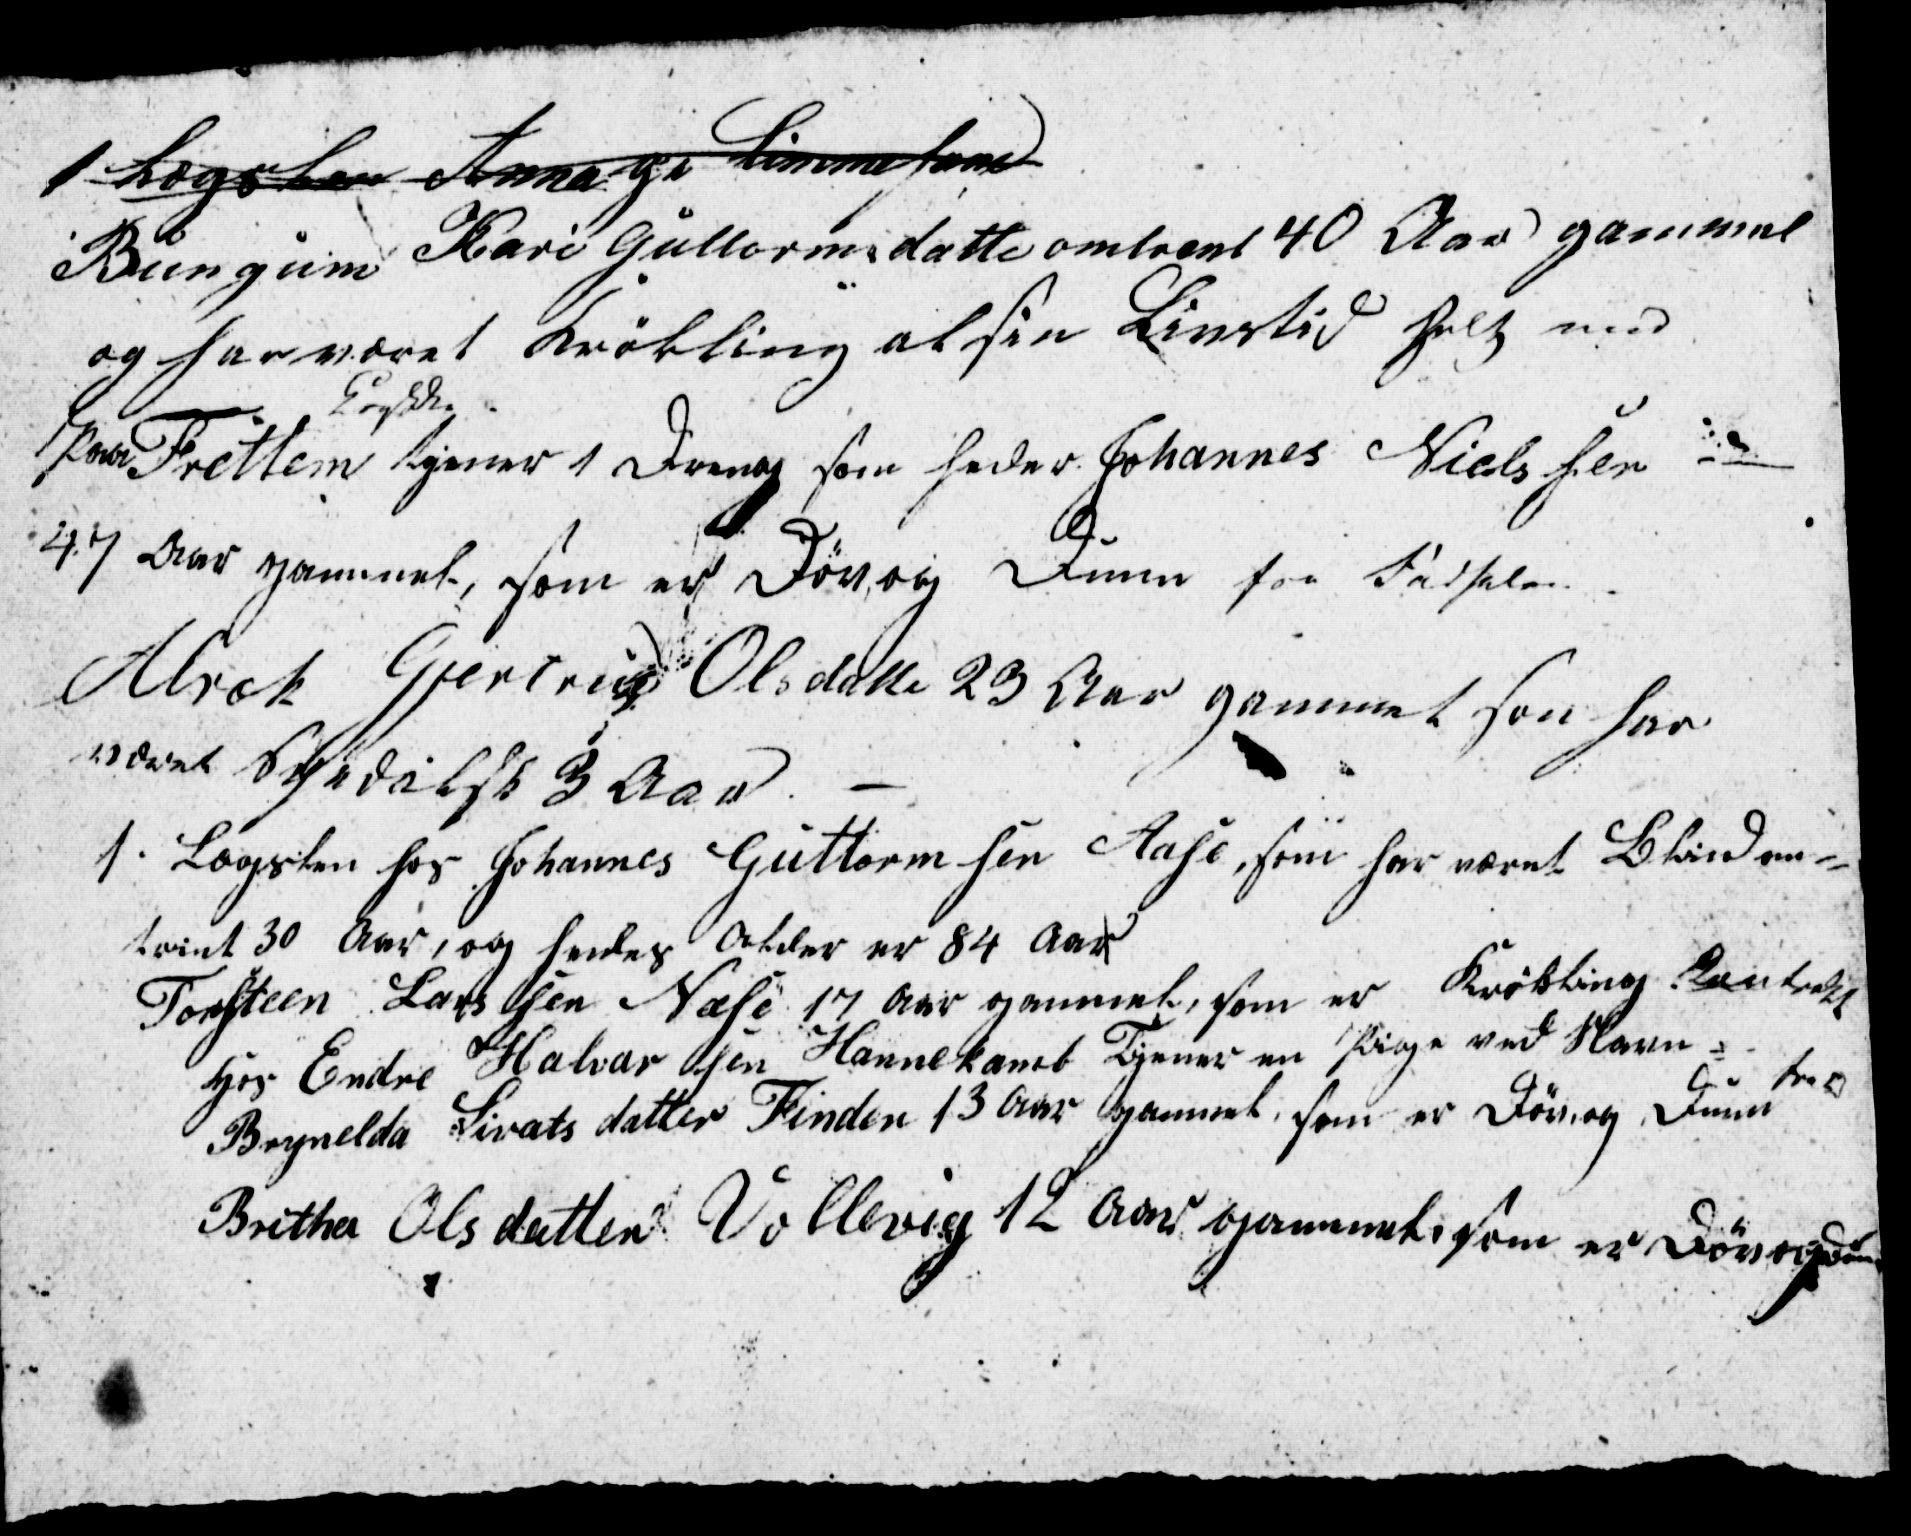 1 Lægslen Anna
Bungum Kari Guttormsdatte omtrent 40 Aar gammel
og har været Krøbling al sin Livstid
paa Frettem tjener 1 Dreng som heder Johannes Nielssen
47 Aar gammel, som er Döv og Dum fra Födselen.
Alræk Gjertrud Olsdatte 23 Aar gammel som har
været Spedalsk 3 Aar. —
1. Lægslen hos Johannes Guttormsen Aase, som har været Blind om-
trint 30 Aar, og hendes Alder er 84 Aar
Torsteen Larssen Næse 17 Aar gammel, som er Krøbling
hos Endre Halvarsen Tjener en Pige ved Navn
Brynelda Sivatsdatter Finden 13 Aar gammel, som er Döv og Dum
Britha Olsdatter Vollevig 12 Aar gammel, som er Döv og dum